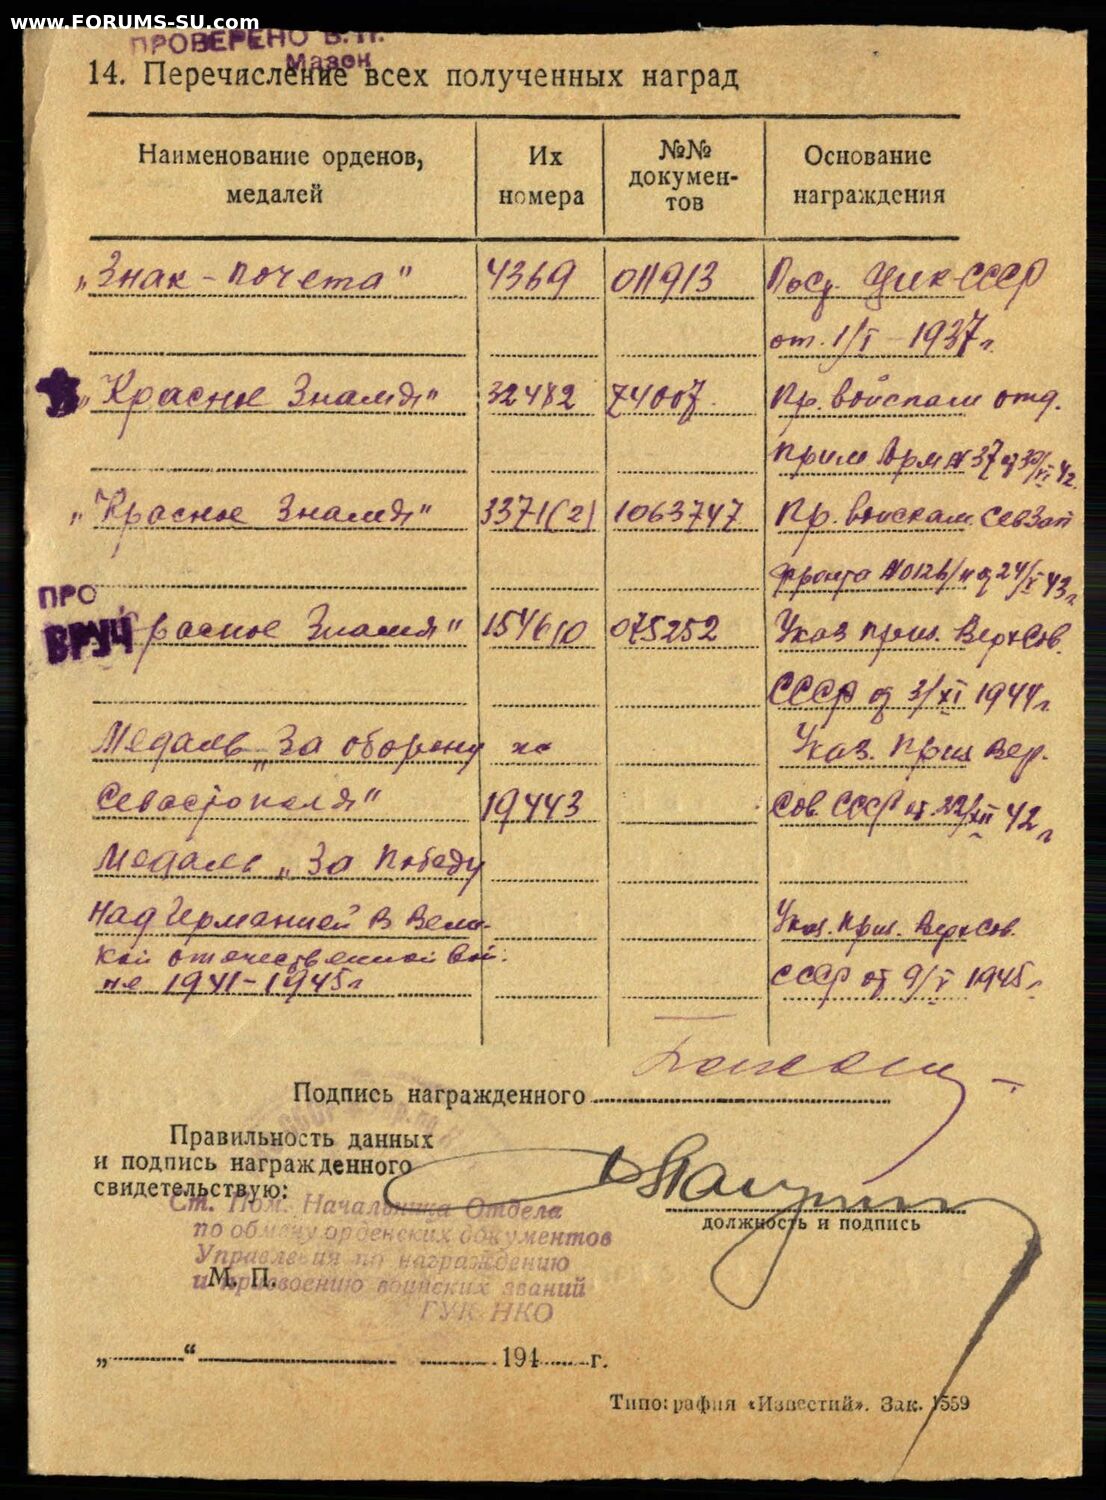 www.FORUMS-SU.com
ПРОВЕРЕНО В. П.
Мазон
14. Перечисление всех полученных наград
Наименование орденов, медалей
Их номера
№№ докумен-
тов
Основание награждения
„Знак-почета" 4369 011913 Пост. ЦИК СССР
от. 1/I-1937г.
„Красное Знамя" 32482 74007. Пр. войскам отд.
Прим Арм № 37 от 30/XI 42г.
„Красное Знамя" 3371(2) 1063747 Пр. войскам СевЗап
фронта № от 24/ 43г.
ПРО
ВРУЧ расное Знамя" 154610 075252 Указ през. ВерхСов.
СССР от 3/XI 1944г.
Медаль „За оборону Указ. През Вер.
Севастополя" 19443 Сов. СССР от 22/XII 42г
Медаль „За Победу
над Германией в Вели-
кой отечественной вой- Указ. През. ВерхСов.
не 1941-1945г СССР от 9/V 1945г.
Подпись награжденного
Правильность данных
и подпись награжденного
свидетельствую:
должность и подпись
Ст. Пом. Начальника Отдела
по обмену орденских документов
Управления по награждению
и присвоению воинских званий
ГУК НКО
М. П.
„ “ 194 г.
Типография «Известий». Зак. 1559